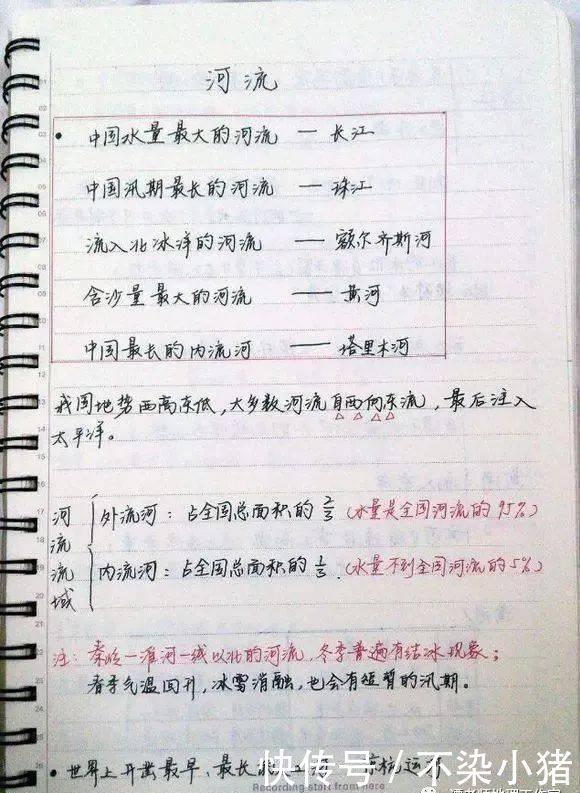 河流
• 中国水量最大的河流 — 长江
中国汛期最长的河流 — 珠江
流入北冰洋的河流 — 额尔齐斯河
含沙量最大的河流 — 黄河
中国最长的内流河 — 塔里木河
我国地势西高东低，大多数河流自西向东流，最后注入
太平洋。
河流流域
外流河：占全国总面积的 2/3 (水量是全国河流的95%)
内流河：占全国总面积的 1/3 (水量不到全国河流的5%)
注：秦岭一淮河一线以北的河流，冬季普遍有结冰现象；
春季气温回升，冰雪消融，也会有短暂的汛期。
• 世界上开凿最早、最长
京杭运
快传号 / 不染小猪
Recording start from here